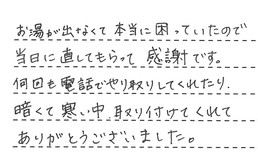 お湯が出なくて本当に困っていたので
当日に直してもらって感謝です。
何回も電話でやり取りしてくれたり、
暗くて寒い中、取り付けてくれて
ありがとうございました。